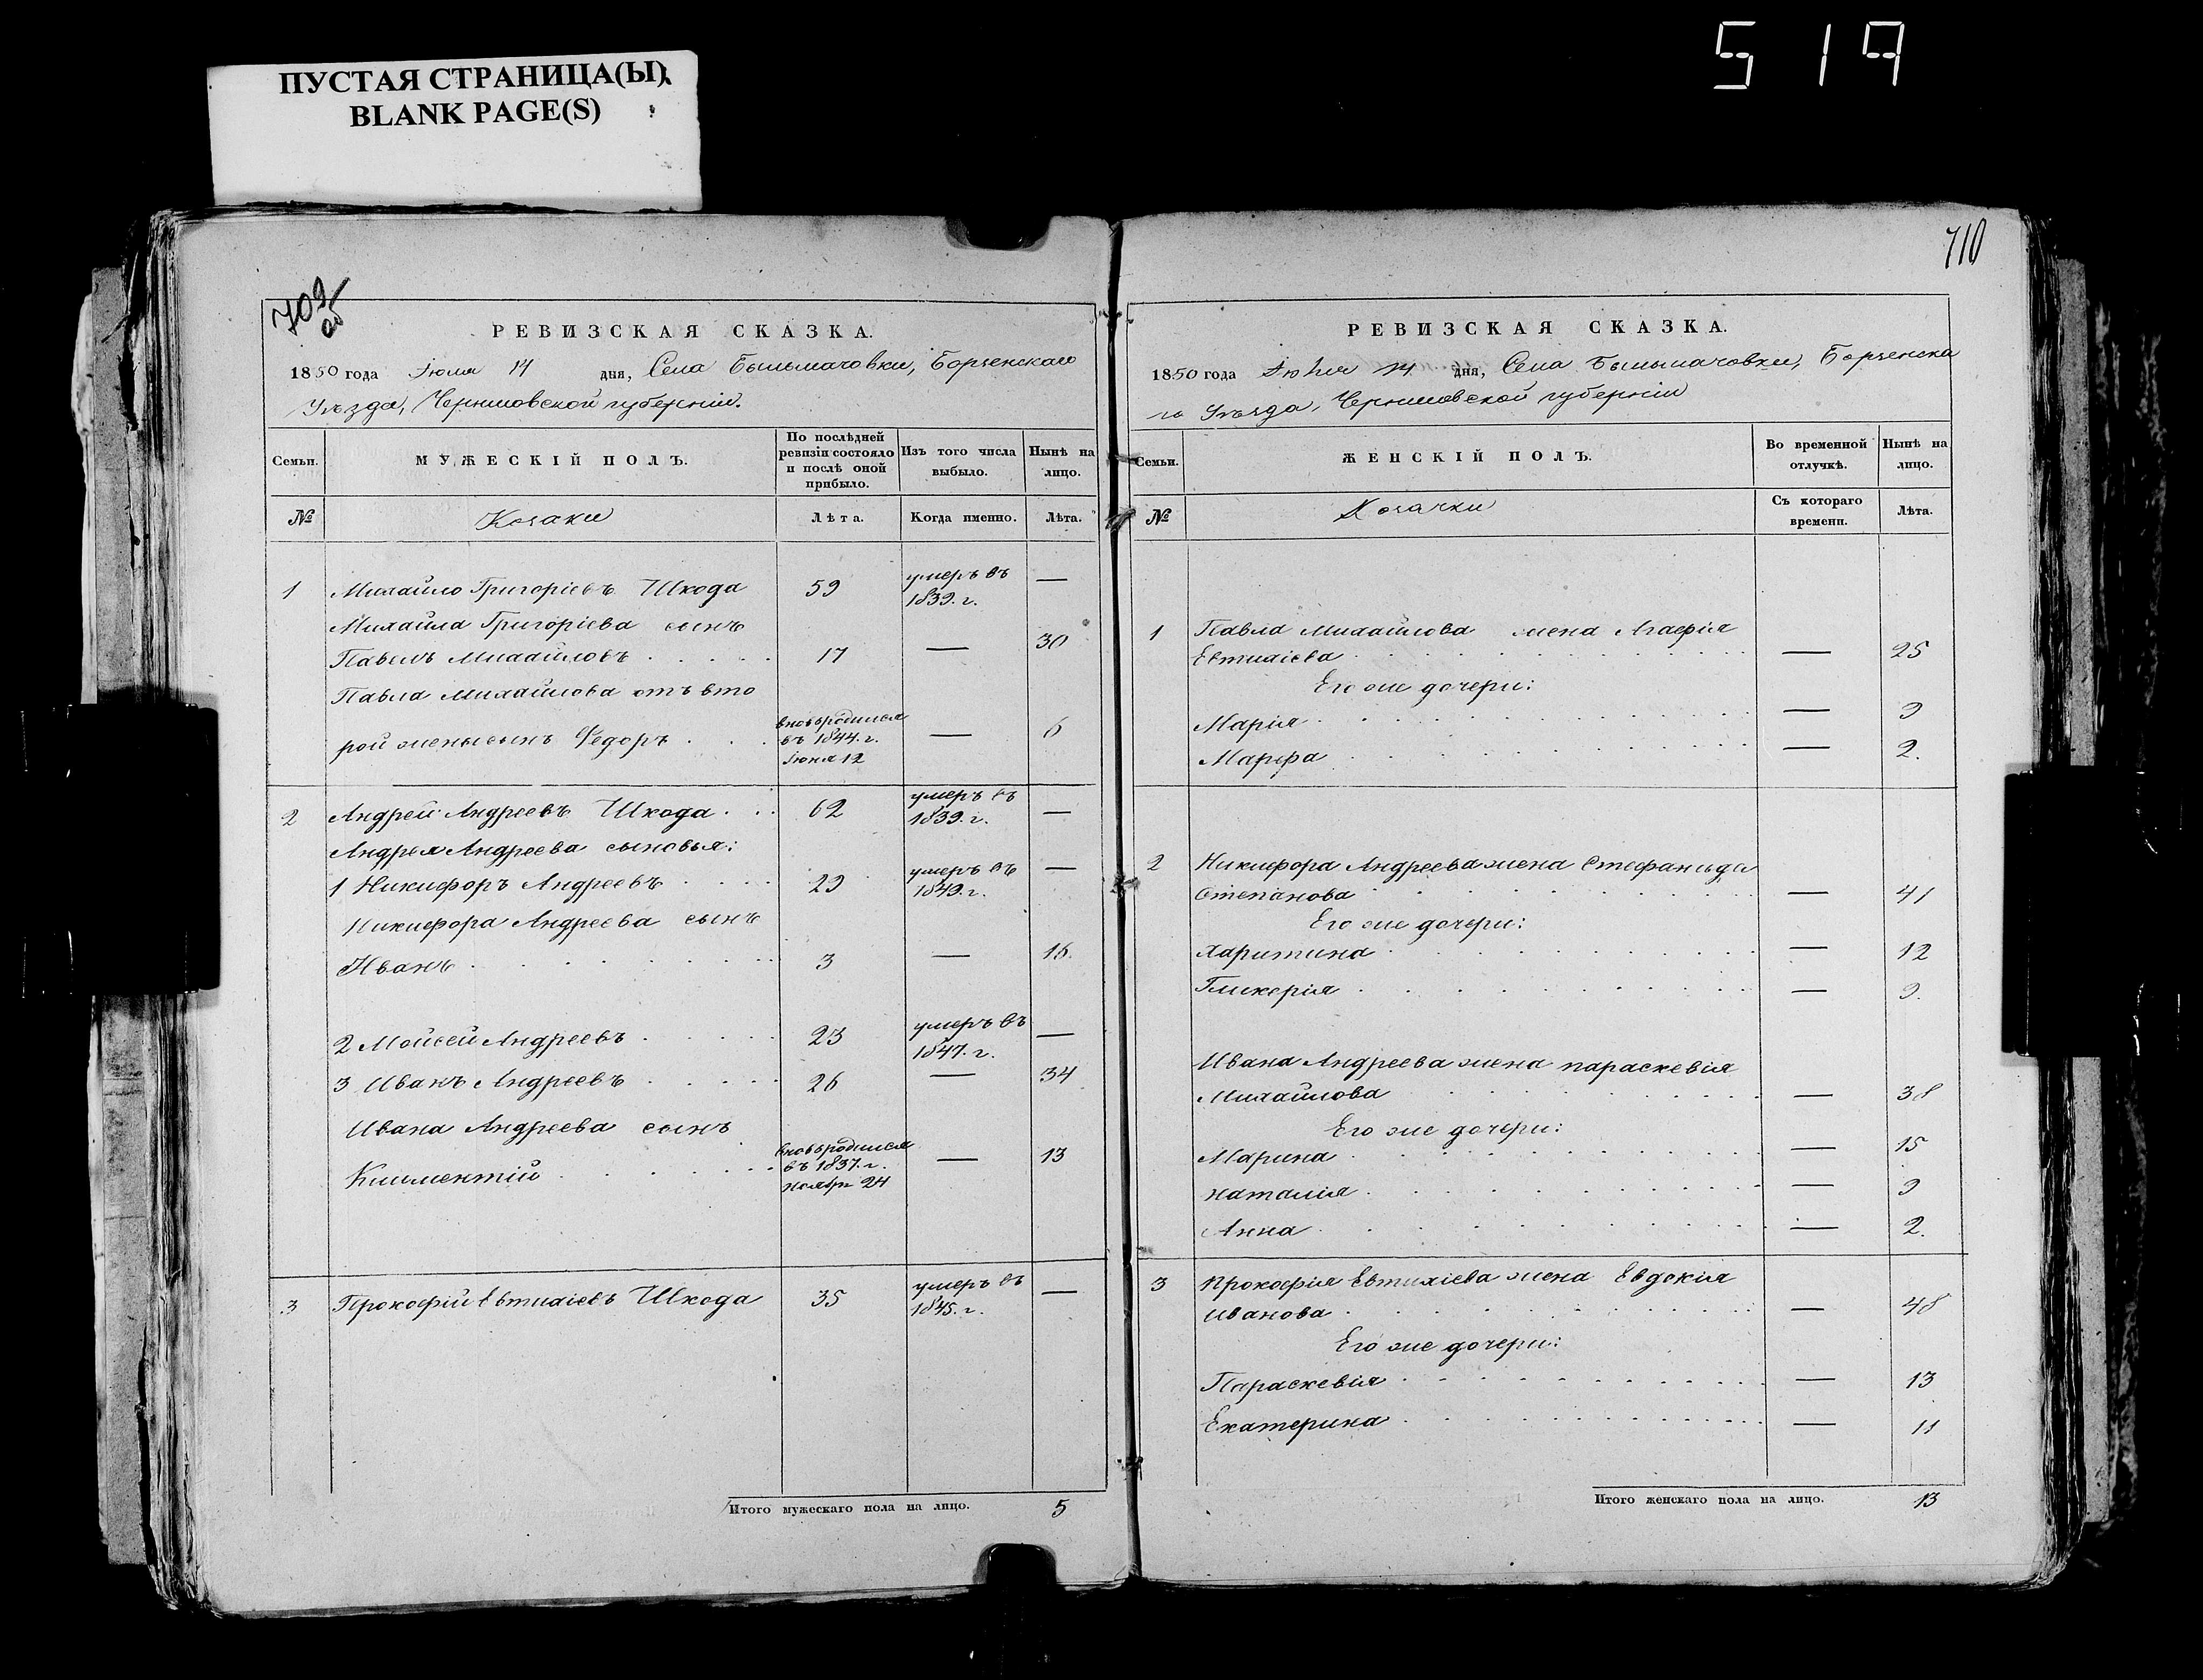 519
ПУСТАЯ СТРАНИЦА(Ы)
BLANK PAGE(S)
709
об
РЕВИЗСКАЯ СКАЗКА.
1850 года Іюля 14 дня, Села Бильмачовки, Борзенскаго
Уѣзда, Черниговской губерніи.
Семьи.
МУЖЕСКІЙ ПОЛЪ.
По послѣдней ревизіи состояло и послѣ оной прибыло.
Изъ того числа выбыло.
Нынѣ на лицо.
№ Козаки Лѣта. Когда именно. Лѣта.
1 Михайло Григоріевъ Шкода 59 умеръ въ 1839. г. —
Михайла Григоріева сынъ
Павелъ Михайловъ 17 — 30
Павла Михайлова отъ вто
рой жены сынъ Федоръ вновь родился въ 1844. г. Іюня 12 — 6
2 Андрей Андреевъ Шкода 62 умеръ въ 1839. г. —
Андрея Андреева сыновья:
1 Никифоръ Андреевъ 29 умеръ въ 1849. г. —
Никифора Андреева сынъ
Иванъ 3 — 16.
2 Мойсей Андреевъ 23 умеръ въ 1847. г. —
3 Иванъ Андреевъ 26 — 34
Ивана Андреева сынъ
Климентій вновь родился въ 1837. г. Ноября 24 — 13
3 Прокофій Евтихіевъ Шкода 35 умеръ въ 1845. г. —
Итого мужескаго пола на лицо. 5
710
РЕВИЗСКАЯ СКАЗКА.
1850 года Іюля 14 дня, Села Бильмачовки, Борзенска
го Уѣзда, Черниговской губерніи
Семьи.
ЖЕНСКІЙ ПОЛЪ.
Во временной отлучкѣ.
Нынѣ на лицо.
№ Козачки Съ котораго времени. Лѣта.
1 Павла Михайлова жена Агафія
Евтихіева — 25
Его же дочери:
Марія — 9
Марфа — 2.
2 Никифора Андреева жена Стефанида
Степанова — 41
Его же дочери:
Харитина — 12
Гликерія — 9.
Ивана Андреева жена параскевія
Михайлова — 38
Его же дочери:
Марина — 15
Наталія — 9
Анна — 2.
3 Прокофія Евтихіева жена Евдокія
Иванова — 48
Его же дочери:
Параскевія — 13
Екатерина — 11
Итого женскаго пола на лицо. 13